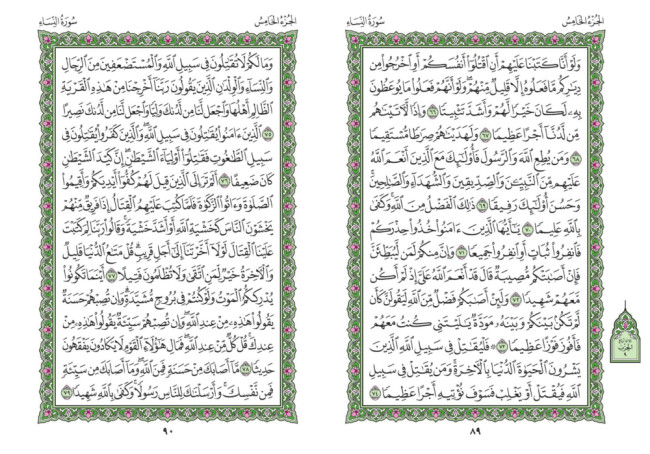 الجزء الخامس
سورة النساء
وَلَوْ أَنَّا كَتَبْنَا عَلَيْهِمْ أَنِ ٱقْتُلُوٓا۟ أَنفُسَكُمْ أَوِ ٱخْرُجُوا۟ مِن
دِيَـٰرِكُم مَّا فَعَلُوهُ إِلَّا قَلِيلٌ مِّنْهُمْ ۖ وَلَوْ أَنَّهُمْ فَعَلُوا۟ مَا يُوعَظُونَ
بِهِۦ لَكَانَ خَيْرًا لَّهُمْ وَأَشَدَّ تَثْبِيتًا ٦٦ وَإِذًا لَّـَٔاتَيْنَـٰهُم
مِّن لَّدُنَّآ أَجْرًا عَظِيمًا ٦٧ وَلَهَدَيْنَـٰهُمْ صِرَٰطًا مُّسْتَقِيمًا
٦٨ وَمَن يُطِعِ ٱللَّهَ وَٱلرَّسُولَ فَأُو۟لَـٰٓئِكَ مَعَ ٱلَّذِينَ أَنْعَمَ ٱللَّهُ
عَلَيْهِم مِّنَ ٱلنَّبِيِّـۧنَ وَٱلصِّدِّيقِينَ وَٱلشُّهَدَآءِ وَٱلصَّـٰلِحِينَ ۚ
وَحَسُنَ أُو۟لَـٰٓئِكَ رَفِيقًا ٦٩ ذَٰلِكَ ٱلْفَضْلُ مِنَ ٱللَّهِ ۚ وَكَفَىٰ
بِٱللَّهِ عَلِيمًا ٧٠ يَـٰٓأَيُّهَا ٱلَّذِينَ ءَامَنُوا۟ خُذُوا۟ حِذْرَكُمْ
فَٱنفِرُوا۟ ثُبَاتٍ أَوِ ٱنفِرُوا۟ جَمِيعًا ٧١ وَإِنَّ مِنكُمْ لَمَن لَّيُبَطِّئَنَّ
فَإِنْ أَصَـٰبَتْكُم مُّصِيبَةٌ قَالَ قَدْ أَنْعَمَ ٱللَّهُ عَلَىَّ إِذْ لَمْ أَكُن
مَّعَهُمْ شَهِيدًا ٧٢ وَلَئِنْ أَصَـٰبَكُمْ فَضْلٌ مِّنَ ٱللَّهِ لَيَقُولَنَّ كَأَن
لَّمْ تَكُنۢ بَيْنَكُمْ وَبَيْنَهُۥ مَوَدَّةٌ يَـٰلَيْتَنِى كُنتُ مَعَهُمْ
فَأَفُوزَ فَوْزًا عَظِيمًا ٧٣ فَلْيُقَـٰتِلْ فِى سَبِيلِ ٱللَّهِ ٱلَّذِينَ
يَشْرُونَ ٱلْحَيَوٰةَ ٱلدُّنْيَا بِٱلْـَٔاخِرَةِ ۚ وَمَن يُقَـٰتِلْ فِى سَبِيلِ
ٱللَّهِ فَيُقْتَلْ أَوْ يَغْلِبْ فَسَوْفَ نُؤْتِيهِ أَجْرًا عَظِيمًا ٧٤
٨٩
الجزء الخامس
سورة النساء
وَمَا لَكُمْ لَا تُقَـٰتِلُونَ فِى سَبِيلِ ٱللَّهِ وَٱلْمُسْتَضْعَفِينَ مِنَ ٱلرِّجَالِ
وَٱلنِّسَآءِ وَٱلْوِلْدَٰنِ ٱلَّذِينَ يَقُولُونَ رَبَّنَآ أَخْرِجْنَا مِنْ هَـٰذِهِ ٱلْقَرْيَةِ
ٱلظَّالِمِ أَهْلُهَا وَٱجْعَل لَّنَا مِن لَّدُنكَ وَلِيًّا وَٱجْعَل لَّنَا مِن لَّدُنكَ نَصِيرًا
٧٥ ٱلَّذِينَ ءَامَنُوا۟ يُقَـٰتِلُونَ فِى سَبِيلِ ٱللَّهِ ۖ وَٱلَّذِينَ كَفَرُوا۟ يُقَـٰتِلُونَ فِى
سَبِيلِ ٱلطَّـٰغُوتِ فَقَـٰتِلُوٓا۟ أَوْلِيَآءَ ٱلشَّيْطَـٰنِ ۖ إِنَّ كَيْدَ ٱلشَّيْطَـٰنِ
كَانَ ضَعِيفًا ٧٦ أَلَمْ تَرَ إِلَى ٱلَّذِينَ قِيلَ لَهُمْ كُفُّوٓا۟ أَيْدِيَكُمْ وَأَقِيمُوا۟
ٱلصَّلَوٰةَ وَءَاتُوا۟ ٱلزَّكَوٰةَ فَلَمَّا كُتِبَ عَلَيْهِمُ ٱلْقِتَالُ إِذَا فَرِيقٌ مِّنْهُمْ
يَخْشَوْنَ ٱلنَّاسَ كَخَشْيَةِ ٱللَّهِ أَوْ أَشَدَّ خَشْيَةً ۚ وَقَالُوا۟ رَبَّنَا لِمَ كَتَبْتَ
عَلَيْنَا ٱلْقِتَالَ لَوْلَآ أَخَّرْتَنَآ إِلَىٰٓ أَجَلٍ قَرِيبٍ ۗ قُلْ مَتَـٰعُ ٱلدُّنْيَا قَلِيلٌ
وَٱلْـَٔاخِرَةُ خَيْرٌ لِّمَنِ ٱتَّقَىٰ وَلَا تُظْلَمُونَ فَتِيلًا ٧٧ أَيْنَمَا تَكُونُوا۟
يُدْرِككُّمُ ٱلْمَوْتُ وَلَوْ كُنتُمْ فِى بُرُوجٍ مُّشَيَّدَةٍ ۗ وَإِن تُصِبْهُمْ حَسَنَةٌ
يَقُولُوا۟ هَـٰذِهِۦ مِنْ عِندِ ٱللَّهِ ۖ وَإِن تُصِبْهُمْ سَيِّئَةٌ يَقُولُوا۟ هَـٰذِهِۦ مِنْ
عِندِكَ ۚ قُلْ كُلٌّ مِّنْ عِندِ ٱللَّهِ ۖ فَمَالِ هَـٰٓؤُلَآءِ ٱلْقَوْمِ لَا يَكَادُونَ يَفْقَهُونَ
حَدِيثًا ٧٨ مَّآ أَصَابَكَ مِنْ حَسَنَةٍ فَمِنَ ٱللَّهِ ۖ وَمَآ أَصَابَكَ مِن سَيِّئَةٍ
فَمِن نَّفْسِكَ ۚ وَأَرْسَلْنَـٰكَ لِلنَّاسِ رَسُولًا ۚ وَكَفَىٰ بِٱللَّهِ شَهِيدًا ٧٩
٩٠